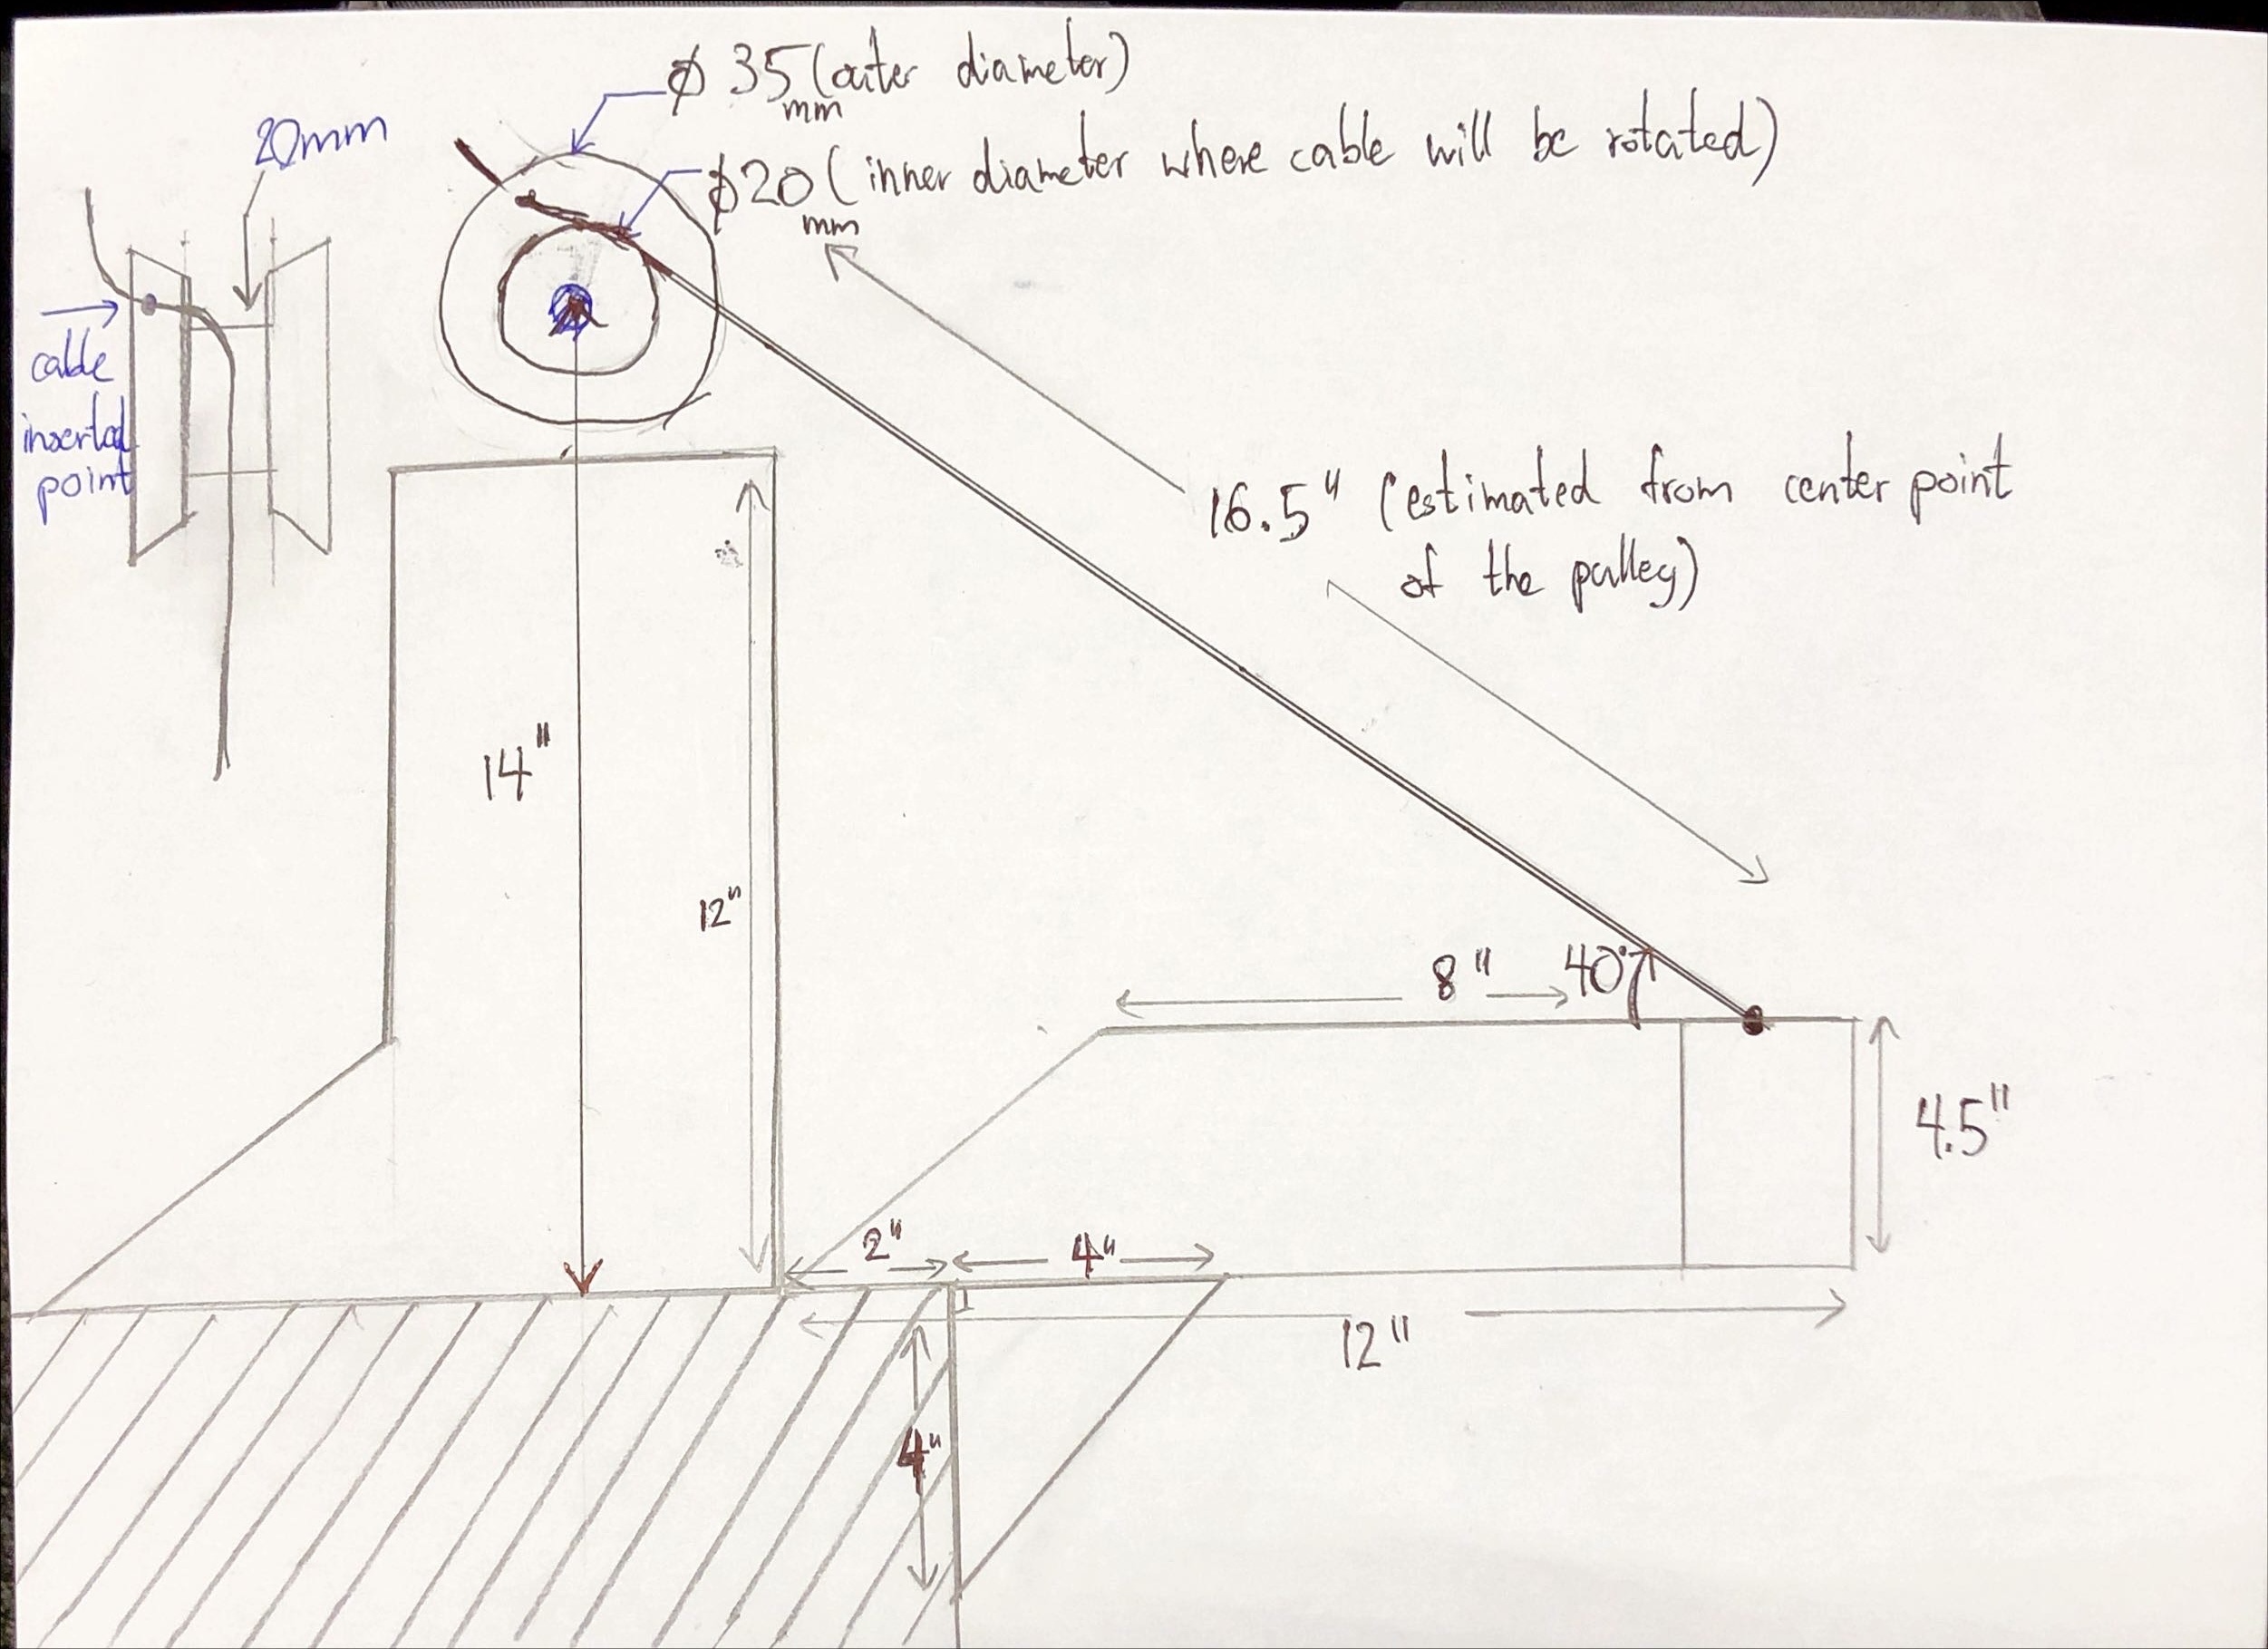 ϕ 35 (outer diameter)
mm
20mm
ϕ20 ( inner diameter where cable will be rotated)
mm
cable
inserted
point
16.5" (estimated from center point
of the pulley)
14"
12"
8"
40°
4.5"
2"
4"
12"
4"